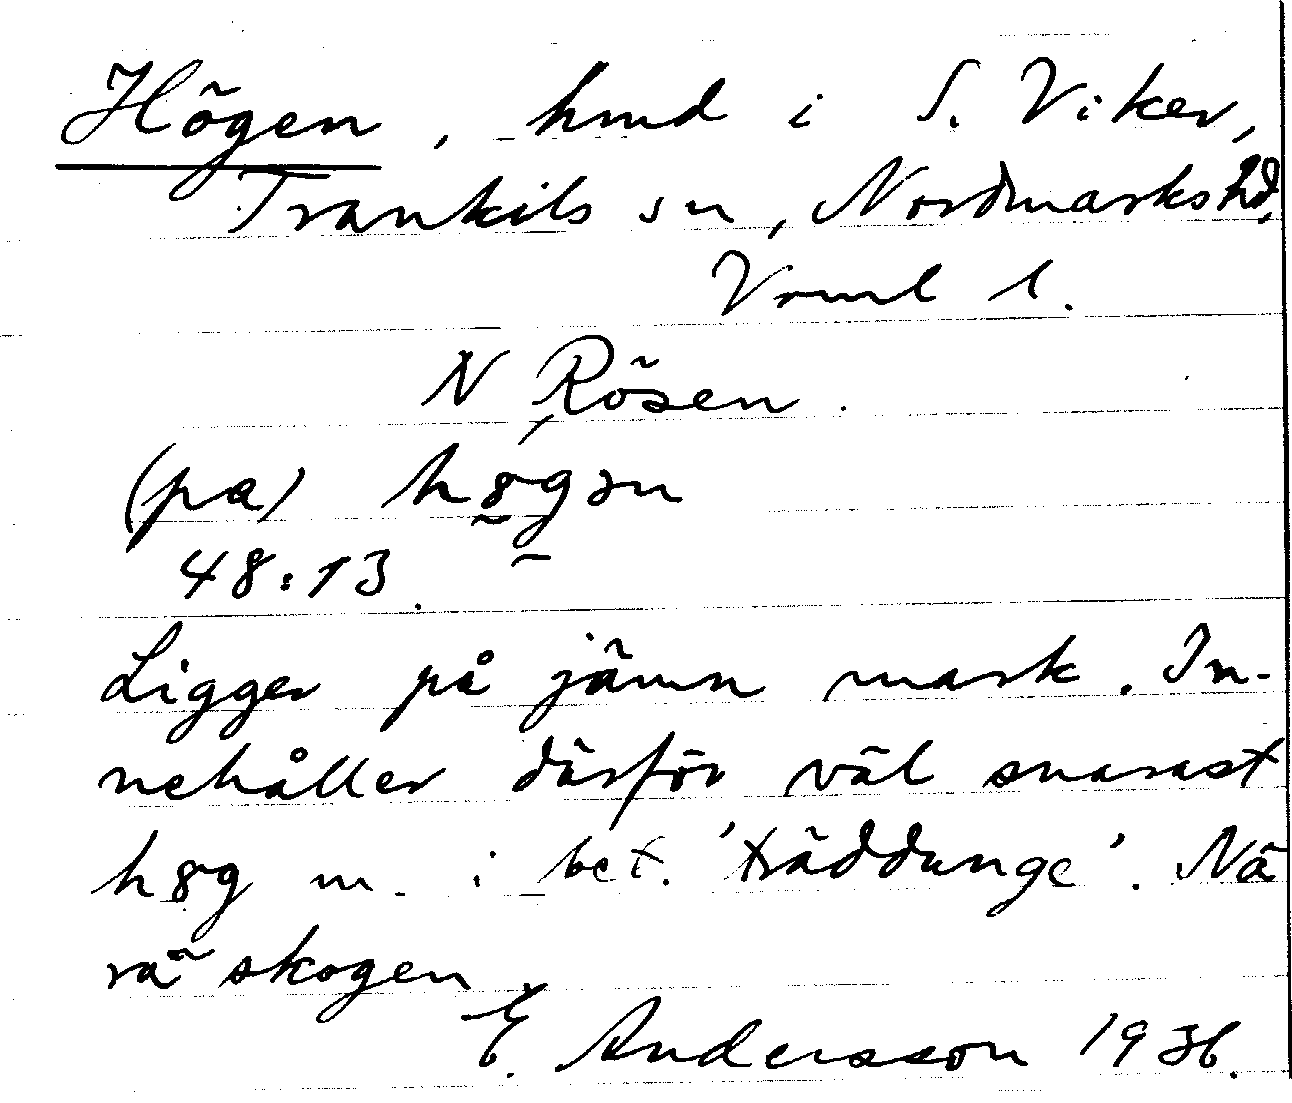 Högen, hmd i S. Viker,
Trankils sn, Nordmarks hd,
Vrml l.
N Rösen.
(pa) högən
48:13.
Ligger på jämn mark. In-
nehåller därför väl snarast
hög m. i bet. 'träddunge'. Nä
ra skogen
E. Andersson 1936.